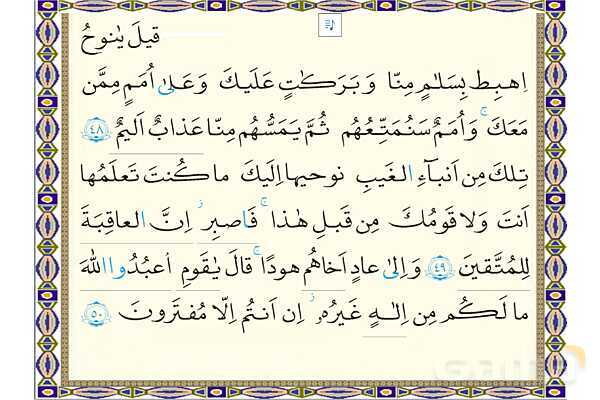 قيلَ يٰنوحُ
اهبِط بِسَلٰمٍ مِنّا وَبَرَكٰتٍ عَلَيكَ وَعَلىٰ أُمَمٍ مِمَّن
مَعَكَ ۚ وَأُمَمٌ سَنُمَتِّعُهُم ثُمَّ يَمَسُّهُم مِنّا عَذابٌ أَليمٌ ﴿٤٨﴾
تِلكَ مِن أَنباءِ الغَيبِ نوحيها إِلَيكَ ما كُنتَ تَعلَمُها
أَنتَ وَلا قَومُكَ مِن قَبلِ هٰذا ۖ فَاصبِر ۖ إِنَّ العاقِبَةَ
لِلمُتَّقينَ ﴿٤٩﴾ وَإِلىٰ عادٍ أَخاهُم هودًا ۚ قالَ يٰقَومِ اعبُدُوا اللّٰهَ
ما لَكُم مِن إِلٰهٍ غَيرُهُ ۖ إِن أَنتُم إِلّا مُفتَرونَ ﴿٥٠﴾